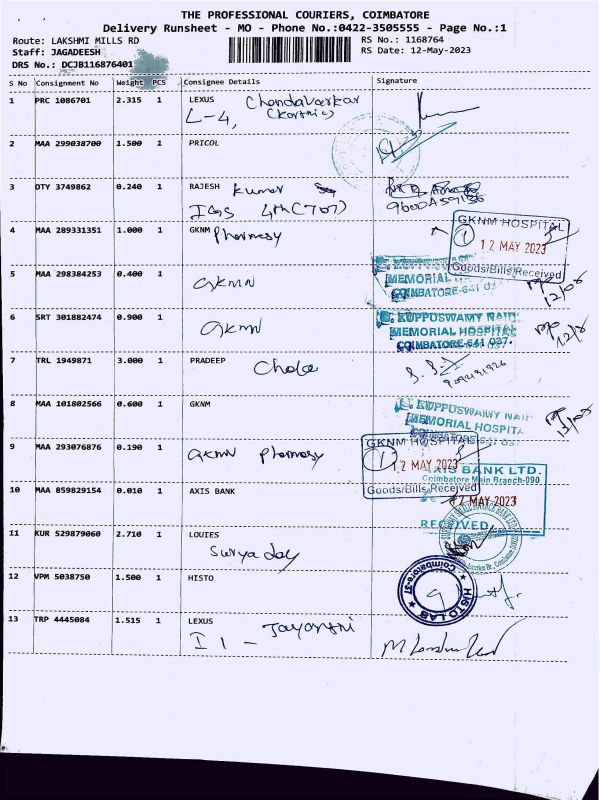 THE PROFESSIONAL COURIERS, COIMBATORE
Delivery Runsheet - MO - Phone No.:0422-3505555 - Page No.:1
Route: LAKSHMI MILLS RD
RS No.: 1168764
Staff: JAGADEESH
RS Date: 12-May-2023
DRS No.: DCJB116876401
S No Consignment No Weight PCS Consignee Details Signature
1 PRC 1086701 2.315 1 LEXUS Chandavarkar
L-4, (Karthic)
2 MAA 299038700 1.500 1 PRICOL
3 DTY 3749862 0.240 1 RAJESH Kumar
IGS 4th (707)
4 MAA 289331351 1.000 1 GKNM Pharmacy
GKNM HOSPITAL
1 12 MAY 2023
Goods/Bills Received
5 MAA 298384253 0.400 1 GKMN
G. KUPPUSWAMY
MEMORIAL
COIMBATORE-641 037
12/05
6 SRT 301882474 0.900 1 GKMN
G. KUPPUSWAMY NAIDU
MEMORIAL HOSPITAL
COIMBATORE-641 037.
7 TRL 1949871 3.000 1 PRADEEP
8 MAA 101802566 0.600 1 GKNM
G. KUPPUSWAMY NAI
MEMORIAL HOSPITA
COIMBATORE-641 037
9 MAA 293076876 0.190 1 GKMN Pharmacy
GKNM HOSPITAL
1 12 MAY 2023
Goods/Bills Received
10 MAA 859829154 0.010 1 AXIS BANK
AXIS BANK LTD.
Coimbatore Main Branch-090
12 MAY 2023
RECEIVED
11 KUR 529879060 2.710 1 LOUIES
Suryaday
12 VPM 5038750 1.500 1 HISTO
HISTO LAB
Coimbatore-37
13 TRP 4445084 1.515 1 LEXUS Jayanthi
I 1 -